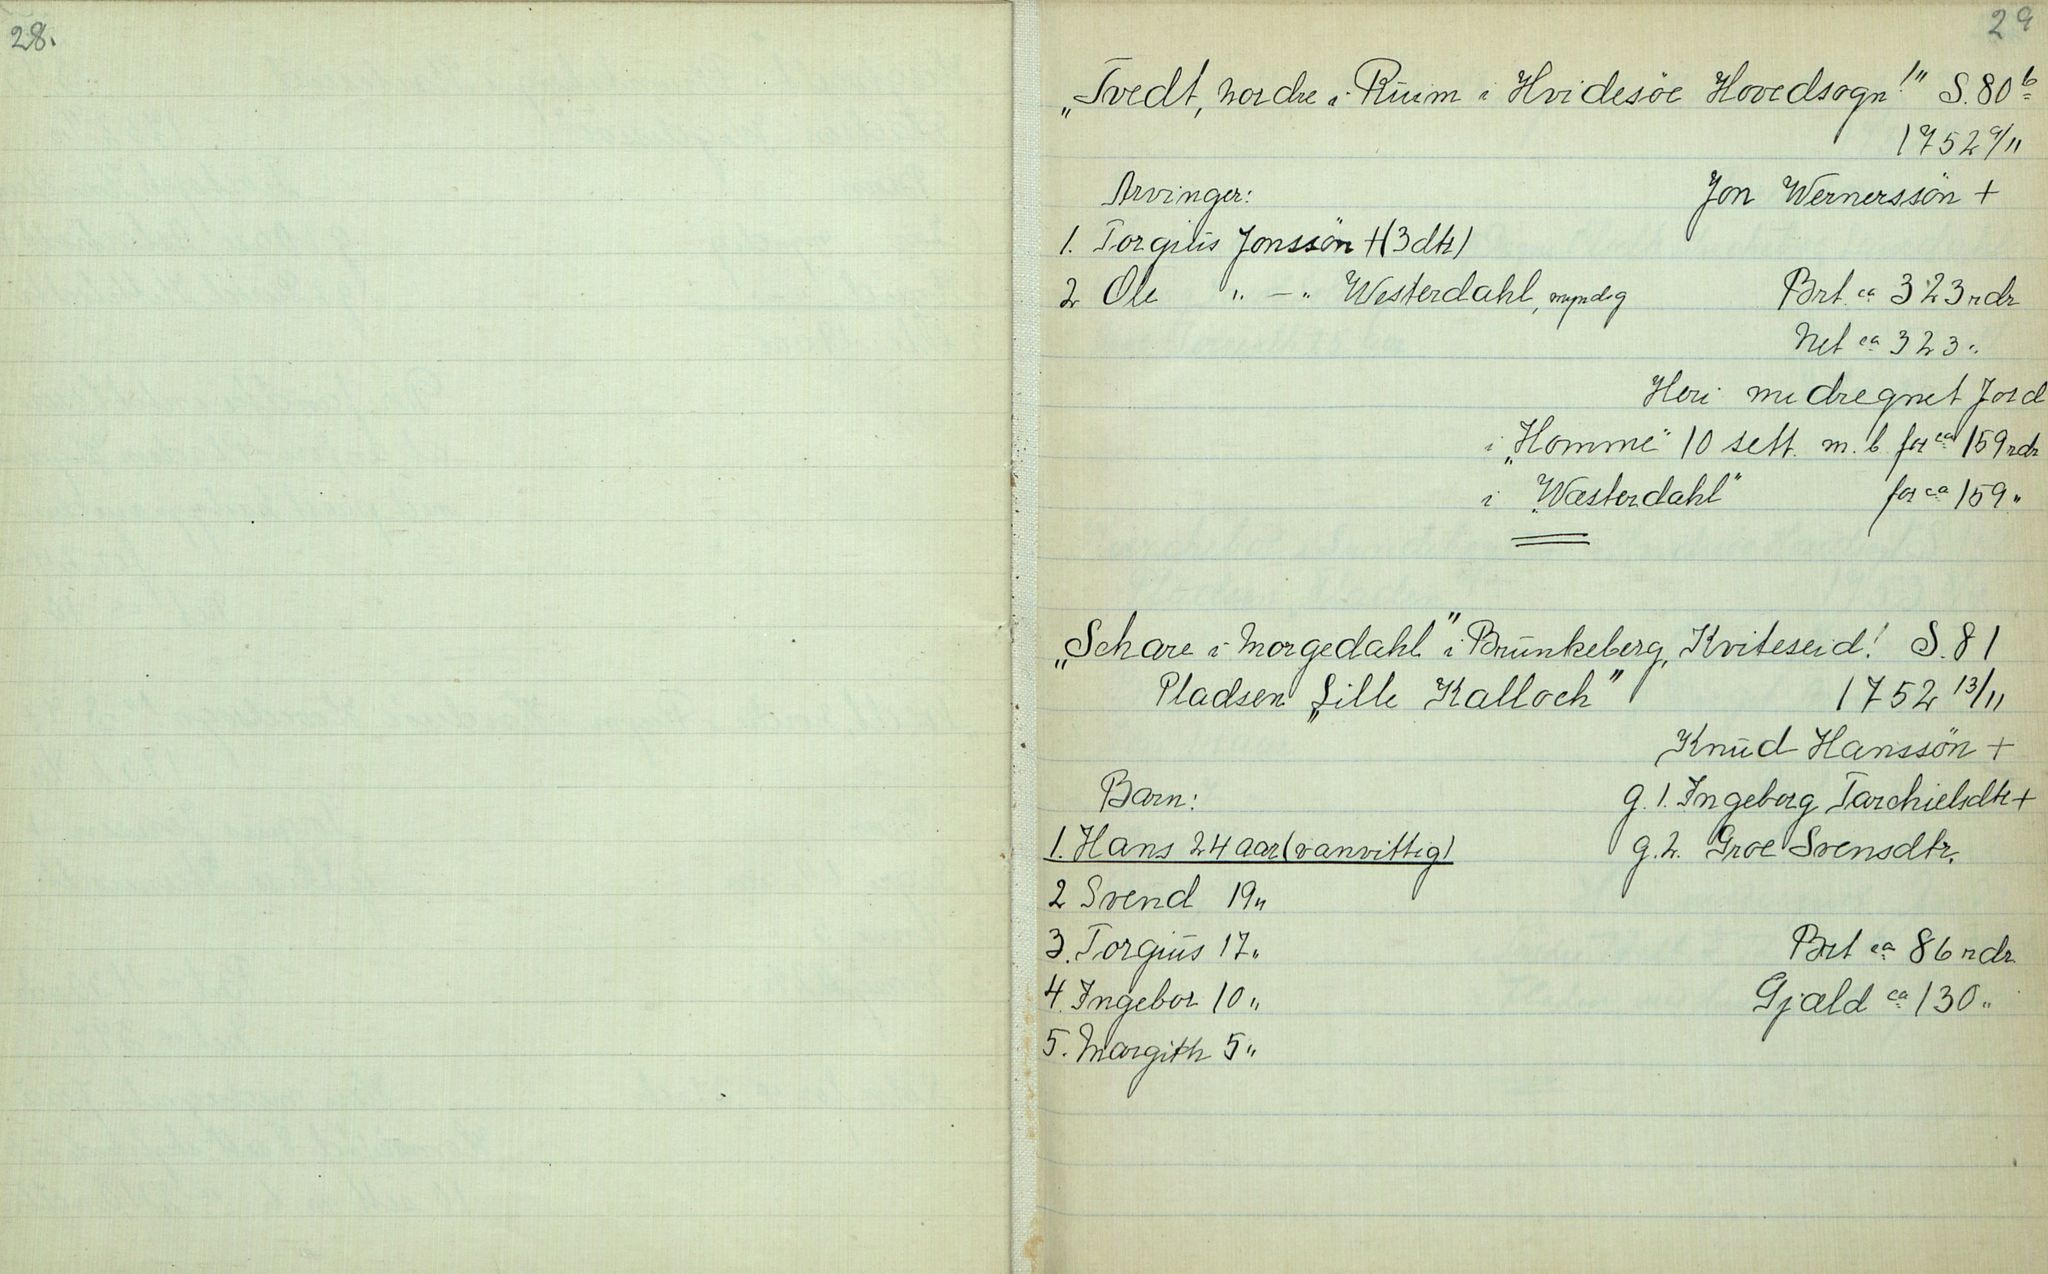 28.
29
„Tvedt, nordre i Ruum i Hvidesöe Hovedsogn!" S. 80 b
1752 9/11
Arvinger:
Jon Wernerssön +
1. Torgius Jonssön + (3 dtr)
2 Ole " — " Westerdahl, myndig
Brt. ca 323 rdr
Net ca 323 "
Heri medregnet Jord
i „Homme" 10 sett. m. b. for ca 159 rdr
i „Wæsterdahl" for ca 159 "
„Schare i Morgedahl" i Brunkeberg, Kviteseid! S. 81
Pladsen „Lille Kalloch" 1752 13/11
Knud Hanssön +
Barn:
g. 1. Ingeborg Tarchielsdtr +
1. Hans 24 aar (vanvittig)
g. 2. Groe Svensdtr.
2 Svend 19 "
3. Torgius 17 "
Brt ca 86 rdr
4. Ingebor 10 "
Gjæld ca 130 "
5. Margith 5 "